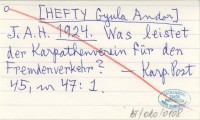 [HEFTY Gyula Andor]
J. A. H. 1924. Was leistet
der Karpathenverein für den
Fremdenverkehr? – Karp. Post
45, no 47: 1.